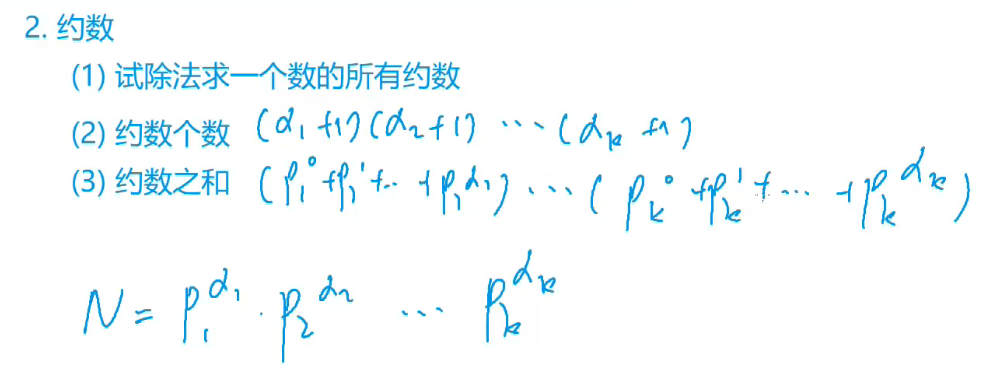 2. 约数
(1) 试除法求一个数的所有约数
(2) 约数个数 (α₁+1)(α₂+1)⋯(αₖ+1)
(3) 约数之和 (p₁⁰+p₁¹+⋯+p₁^α₁)⋯(pₖ⁰+pₖ¹+⋯+pₖ^αₖ)
N = p₁^α₁ · p₂^α₂ ⋯ pₖ^αₖ